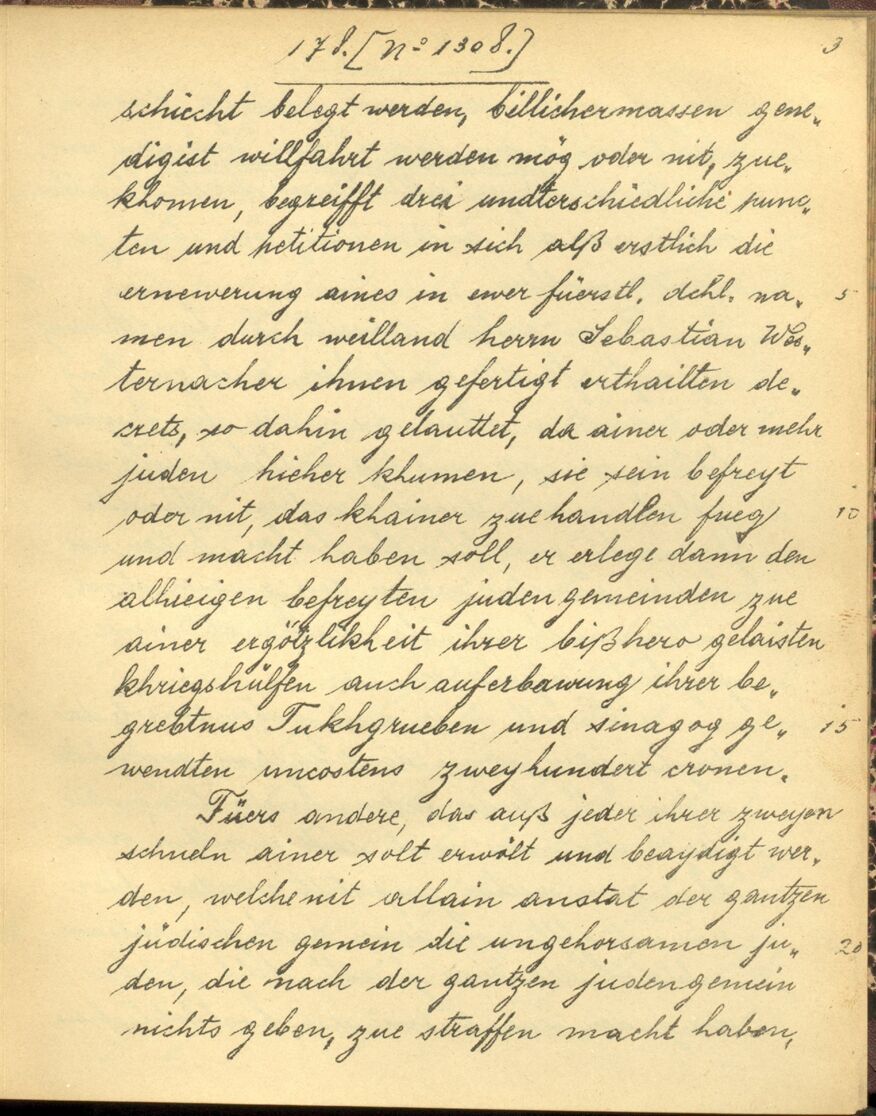 178. [No 1308.]
3
schicht belegt werden, billichermassen gene„
digist willfahrt werden mög oder nit, zue„
khomen, begreifft drei undterschiedliche punc„
ten und petitionen in sich alß erstlich die
ernewerung aines in ewer füerstl. dchl. na„ 5
men durch weilland herrn Sebastian Wes„
ternacher ihnen gefertigt erthailten de„
crets, so dahin gelauttet, da ainer oder mehr
juden hieher khumen, sie sein befreyt
oder nit, das khainer zue handlen fueg 10
und macht haben soll, er erlege dann den
alhieigen befreyten judengemeinden zue
ainer ergötzlikheit ihrer bißhero gelaisten
khriegshülfen auch auferbawung ihrer be„
grebtnus Tukhgrueben und sinagog ge„ 15
wendten uncostens zweyhundert cronen.
Füers andere, das auß jeder ihrer zweyen
schueln ainer solt erwölt und beaydigt wer„
den, welche nit allain anstat der gantzen
jüdischen gemein die ungehorsamen ju„ 20
den, die nach der gantzen judengemein
nichts geben, zue straffen macht haben,